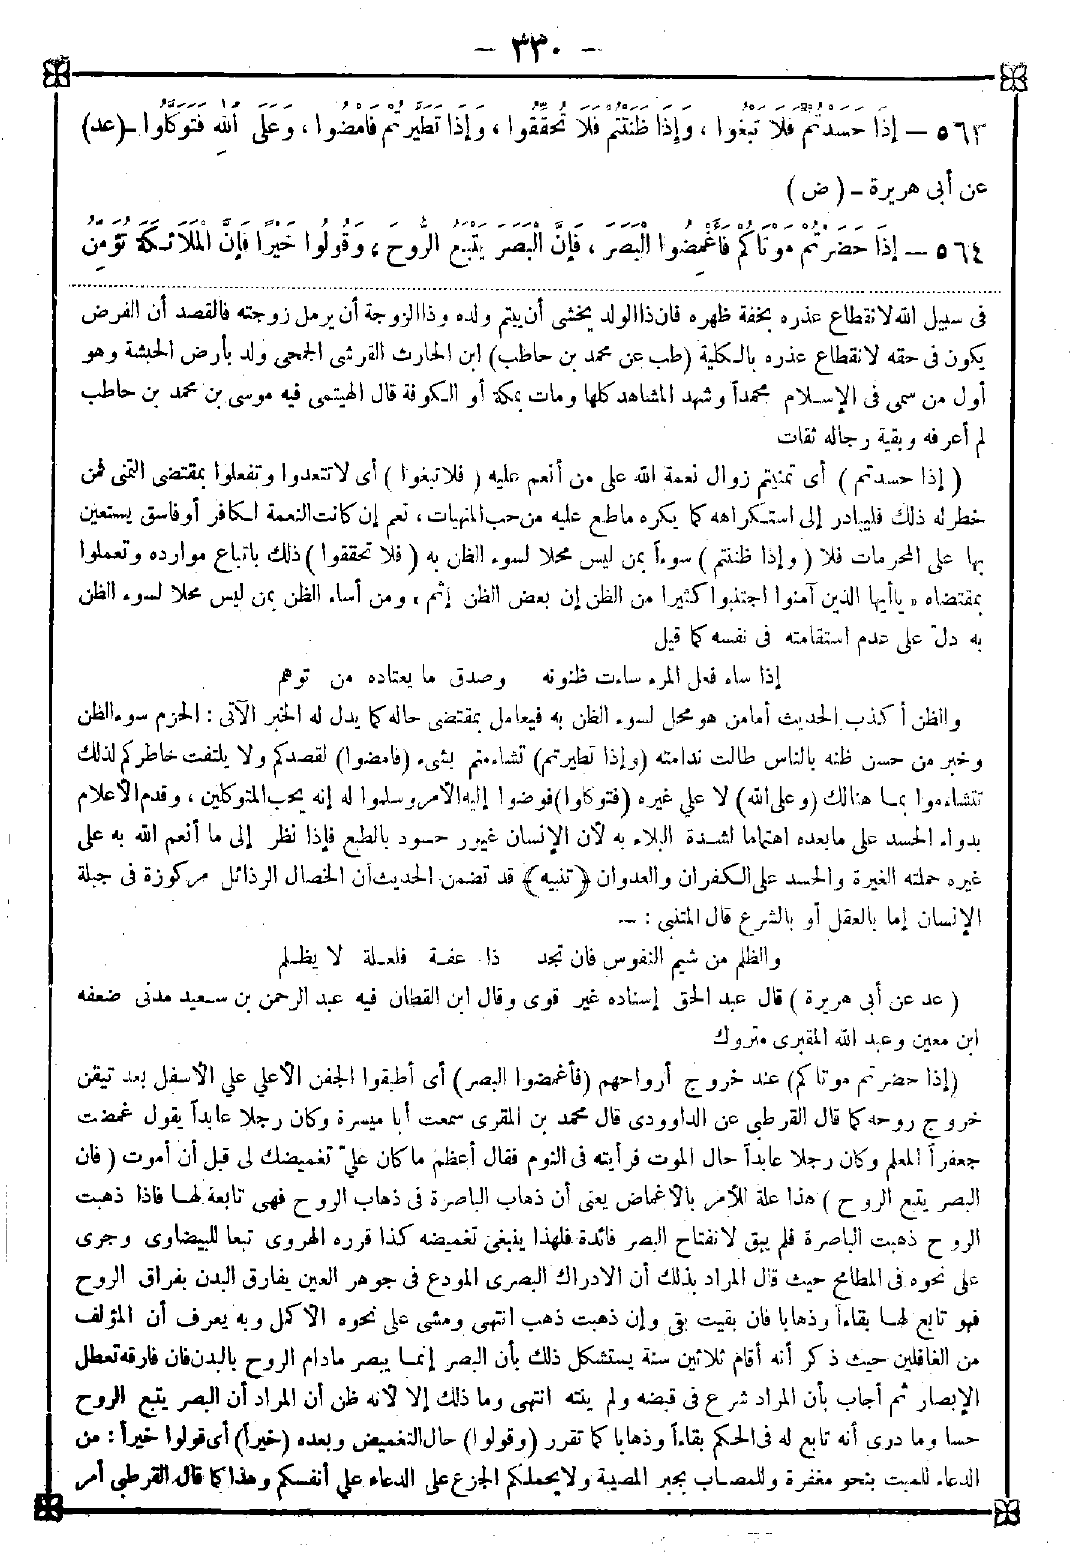 - ٣٣٠ -
٥٦٣ - إِذَا حَسَدْتُمْ فَلَا تَبْغُوا ، وَإِذَا ظَنَنْتُمْ فَلَا تُحَقِّقُوا ، وَإِذَا تَطَيَّرْتُمْ فَامْضُوا ، وَعَلَى اللهِ فَتَوَكَّلُوا - (عد)
عن أبى هريرة - (ض)
٥٦٤ - إِذَا حَضَرْتُمْ مَوْتَاكُمْ فَأَغْمِضُوا الْبَصَرَ ، فَإِنَّ الْبَصَرَ يَتْبَعُ الرُّوحَ ، وَقُولُوا خَيْرًا فَإِنَّ الْمَلَائِكَةَ تُؤَمِّنُ
فى سبيل الله لانقطاع عذره بخفة ظهره فان ذا الولد يخشى أن ييتم ولده وذا الزوجة أن يرمل زوجته فالقصد أن الفرض
يكون فى حقه لانقطاع عذره بالكلية (طب عن محمد بن حاطب) ابن الحارث القرشى الجمحى ولد بأرض الحبشة وهو
أول من سمى فى الإسلام محمداً وشهد المشاهد كلها ومات بمكة أو الكوفة قال الهيتمى فيه موسى بن محمد بن حاطب
لم أعرفه وبقية رجاله ثقات
( إذا حسدتم ) أى تمنيتم زوال نعمة الله على من أنعم عليه ( فلا تبغوا ) أى لا تتعدوا وتفعلوا بمقتضى التمنى فمن
خطر له ذلك فليبادر إلى استكراهه كما يكره ماطبع عليه من حب المنهيات ، نعم إن كانت النعمة لكافر أو فاسق يستعين
بها على المحرمات فلا ( وإذا ظننتم ) سوءاً بمن ليس محلا لسوء الظن به ( فلا تحققوا ) ذلك باتباع موارده وتعملوا
بمقتضاه « ياأيها الذين آمنوا اجتنبوا كثيرا من الظن إن بعض الظن إثم » ومن أساء الظن بمن ليس محلا لسوء الظن
به دلّ على عدم استقامته فى نفسه كما قيل
إذا ساء فعل المرء ساءت ظنونه وصدق ما يعتاده من توهم
والظن أكذب الحديث أمامن هو محل لسوء الظن به فيعامل بمقتضى حاله كما يدل له الخبر الآتى : الحزم سوء الظن
وخبر من حسن ظنه بالناس طالت ندامته (وإذا تطيرتم) تشاءمتم بشىء (فامضوا) لقصدكم ولا يلتفت خاطركم لذلك
تتشاءموا بما هنالك (وعلى الله) لا على غيره (فتوكلوا) فوضوا إليه الأمر وسلموا له إنه يحب المتوكلين ، وقدم الأعلام
بدواء الحسد على مابعده اهتماما لشدة البلاء به لأن الإنسان غيور حسود بالطبع فإذا نظر إلى ما أنعم الله به على
غيره حملته الغيرة والحسد على الكفران والعدوان ﴿تنبيه﴾ قد تضمن الحديث أن الخصال الرذائل مركوزة فى جبلة
الإنسان إما بالعقل أو بالشرع قال المتنبى : -
والظلم من شيم النفوس فان تجد ذا عفة فلعلة لا يظلم
( عد عن أبى هريرة ) قال عبد الحق إسناده غير قوى وقال ابن القطان فيه عبد الرحمن بن سعيد مدنى ضعفه
ابن معين وعبد الله المقبرى متروك
(إذا حضرتم موتاكم) عند خروج أرواحهم (فأغمضوا البصر) أى أطبقوا الجفن الأعلى على الأسفل بعد تيقن
خروج روحه كما قال القرطبى عن الداوودى قال محمد بن المقرى سمعت أبا ميسرة وكان رجلا عابداً يقول غمضت
جعفراً المعلم وكان رجلا عابداً حال الموت فرأيته فى النوم فقال أعظم ما كان علىّ تغميضك لى قبل أن أموت ( فان
البصر يتبع الروح ) هذا علة للأمر بالاغماض يعنى أن ذهاب الباصرة فى ذهاب الروح فهى تابعة لها فاذا ذهبت
الروح ذهبت الباصرة فلم يبق لانفتاح البصر فائدة فلهذا ينبغى تغميضه كذا قرره الهروى تبعا للبيضاوى وجرى
على نحوه فى المطامح حيث قال المراد بذلك أن الادراك البصرى المودع فى جوهر العين يفارق البدن بفراق الروح
فهو تابع لها بقاءاً وذهابا فان بقيت بقى وإن ذهبت ذهب انتهى ومشى على نحوه الأكمل وبه يعرف أن المؤلف
من الغافلين حيث ذكر أنه أقام ثلاثين سنة يستشكل ذلك بأن البصر إنما يبصر مادام الروح بالبدن فان فارقه تعطل
الإبصار ثم أجاب بأن المراد شرع فى قبضه ولم ينته انتهى وما ذلك إلا لأنه ظن أن المراد أن البصر يتبع الروح
حسا وما درى أنه تابع له فى الحكم بقاءاً وذهابا كما تقرر (وقولوا) حال التغميض وبعده (خيراً) أى قولوا خيراً : من
الدعاء للميت بنحو مغفرة وللمصاب بجبر المصيبة ولا يحملكم الجزع على الدعاء على أنفسكم وهذا كما قال القرطبى أمر